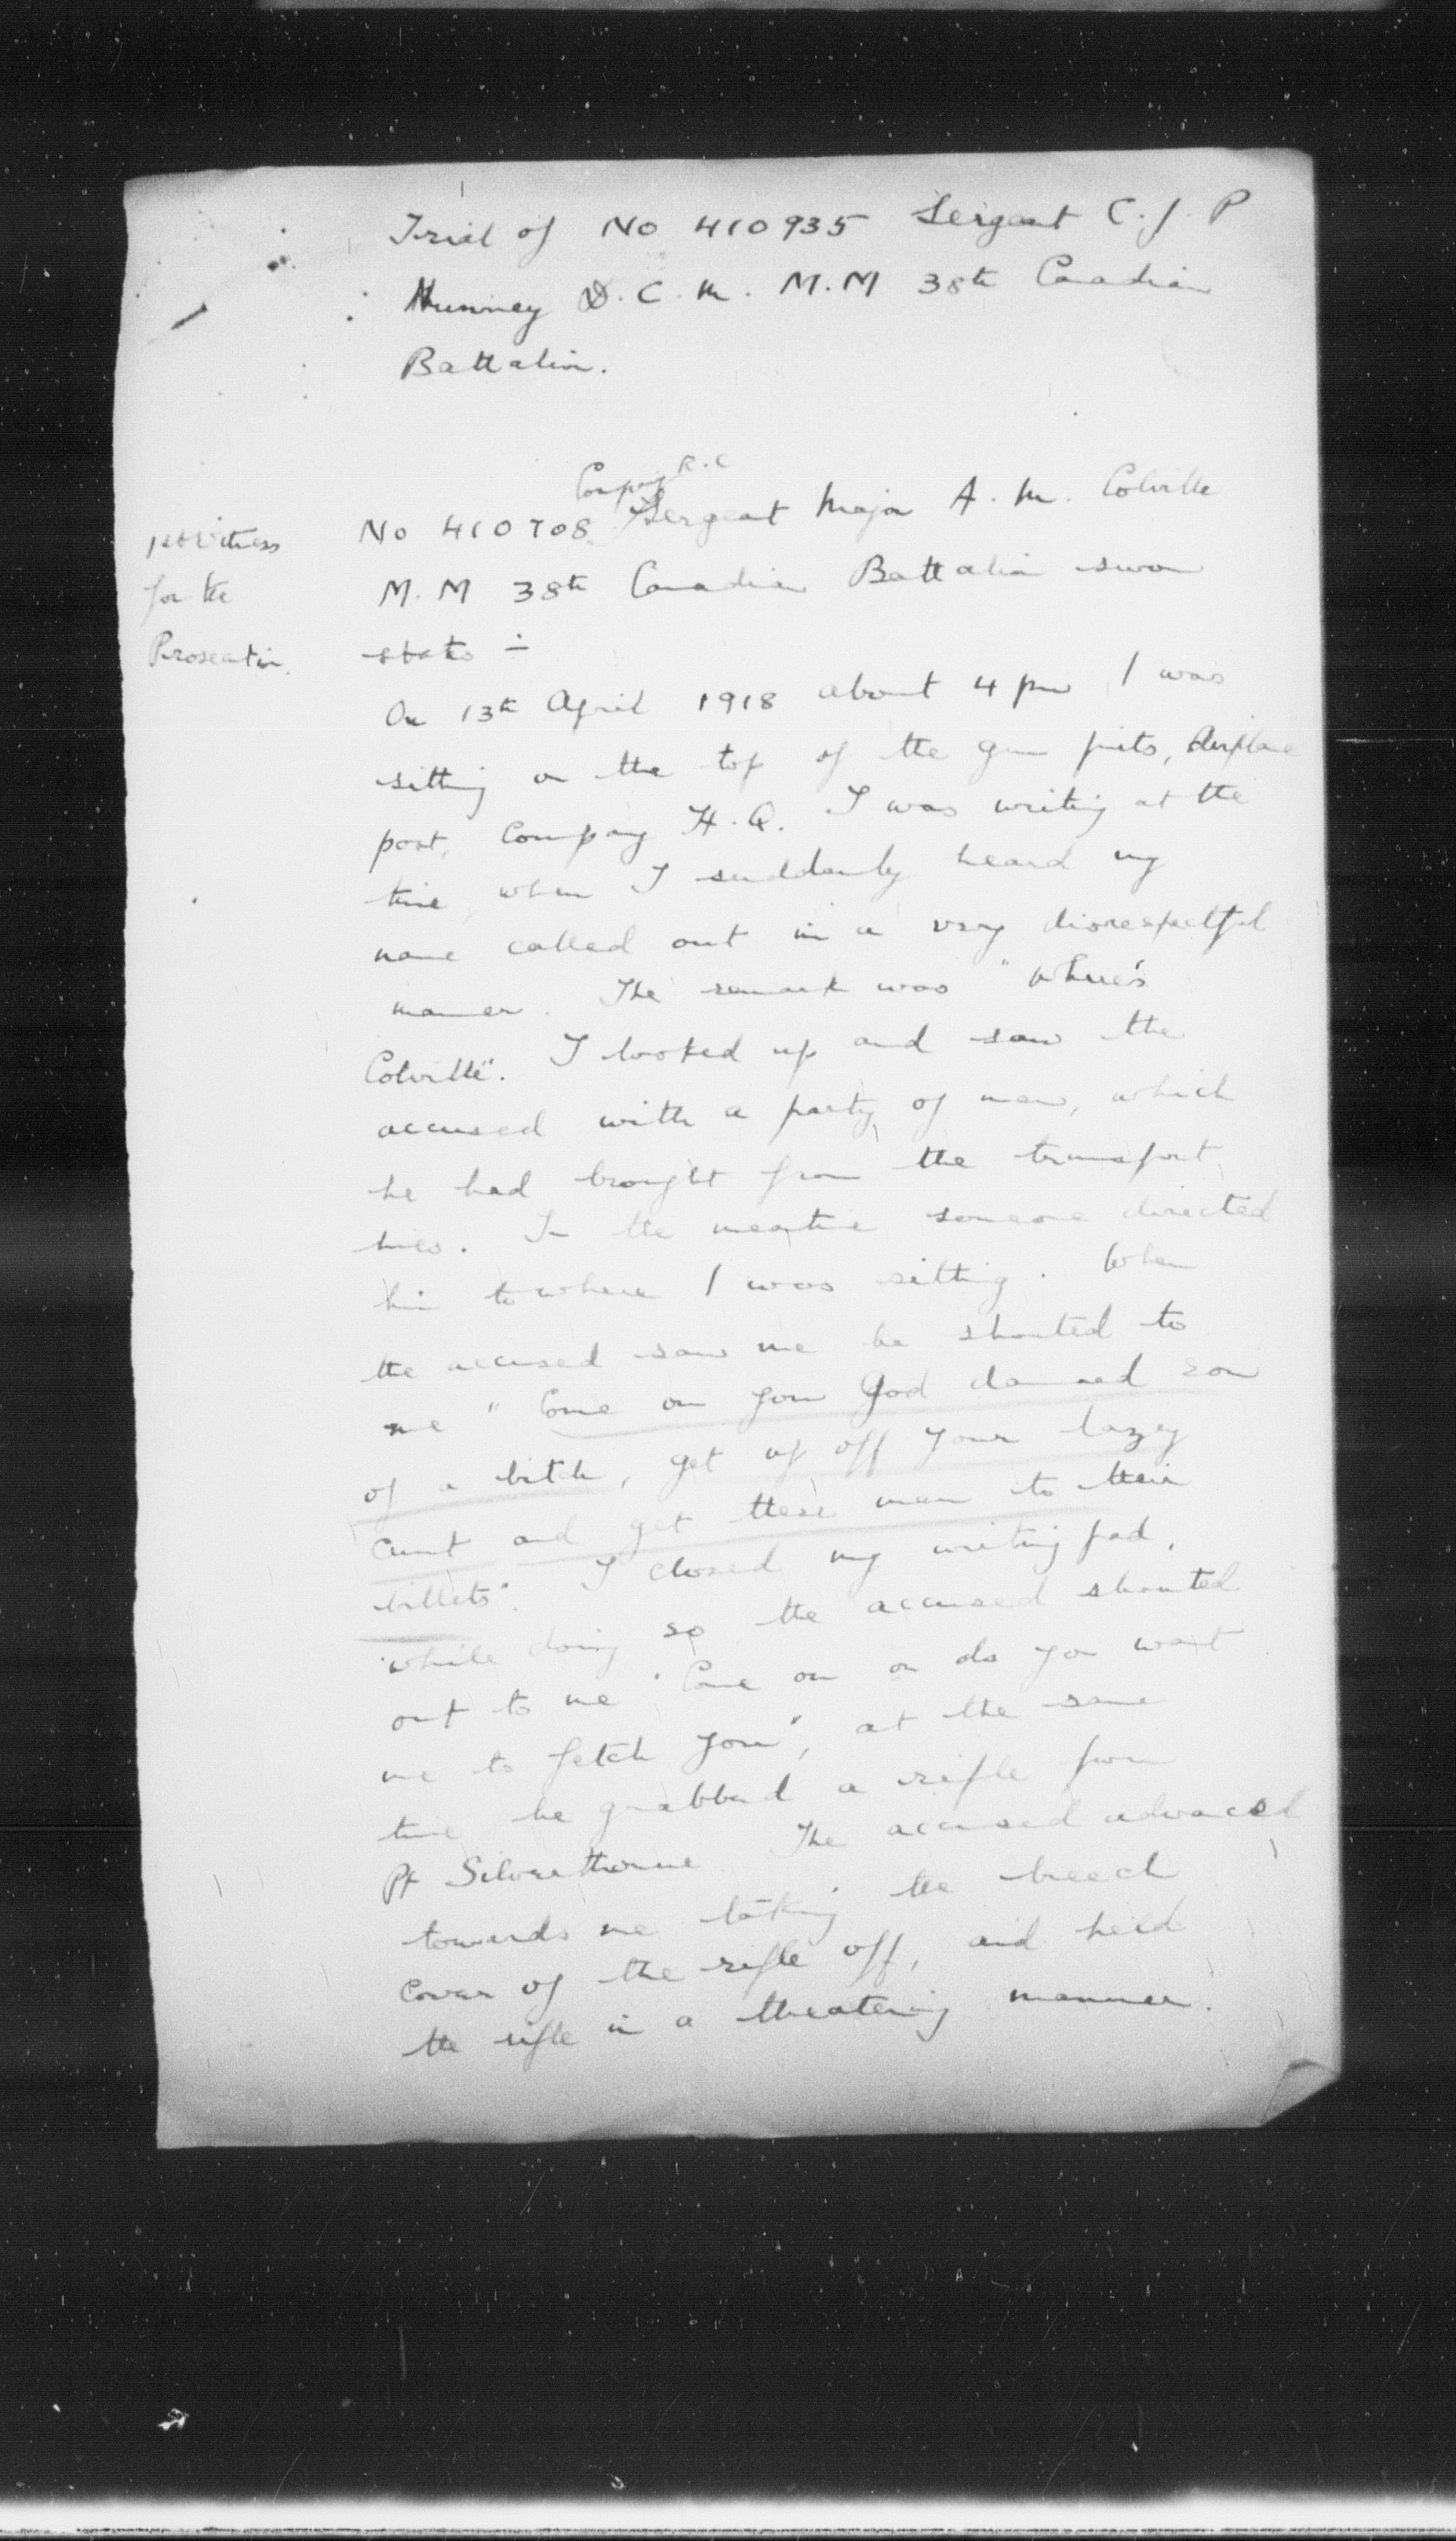 Trial of No 410935 Sergeant C. J. P
Hunney D.C.M. M.M 38th Canadian
Battalion.
Company R.C
No 410708 Sergeant Major A. M. Colville
1st Witness
for the
Prosecution.
M. M 38th Canadian Battalion sworn
states :-
On 13th April 1918 about 4 pm I was
sitting on the top of the gun pits, Airplane
post, Company H.Q. I was writing at the
time, when I suddenly heard my
name called out in a very disrespectful
manner. The remark was "Where's
Colville". I looked up and saw the
accused with a party of men, which
he had brought from the transport
lines. In the meantime someone directed
him to where I was sitting. When
the accused saw me he shouted to
me "Come on you God damned son
of a bitch, get up off your lazy
cunt and get these men to their
billets". I closed my writing pad,
while doing so the accused shouted
out to me "Come on or do you want
me to fetch you", at the same
time he grabbed a rifle from
Pt Silverthorne. The accused advanced
towards me taking the breech
cover of the rifle off, and held
the rifle in a theatening manner.